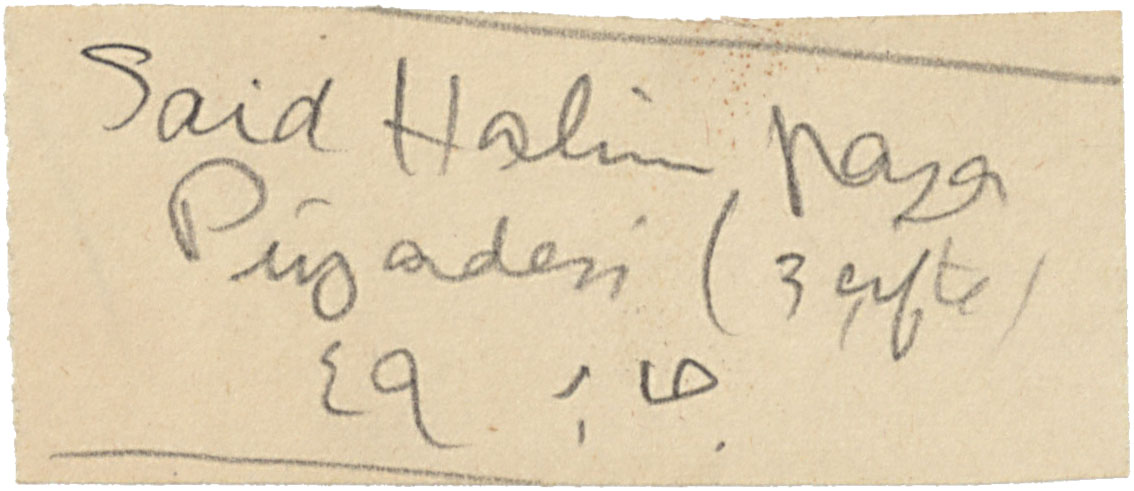 Said Halim paşa
Piyadesi (3 çifte)
ص : ٤٩